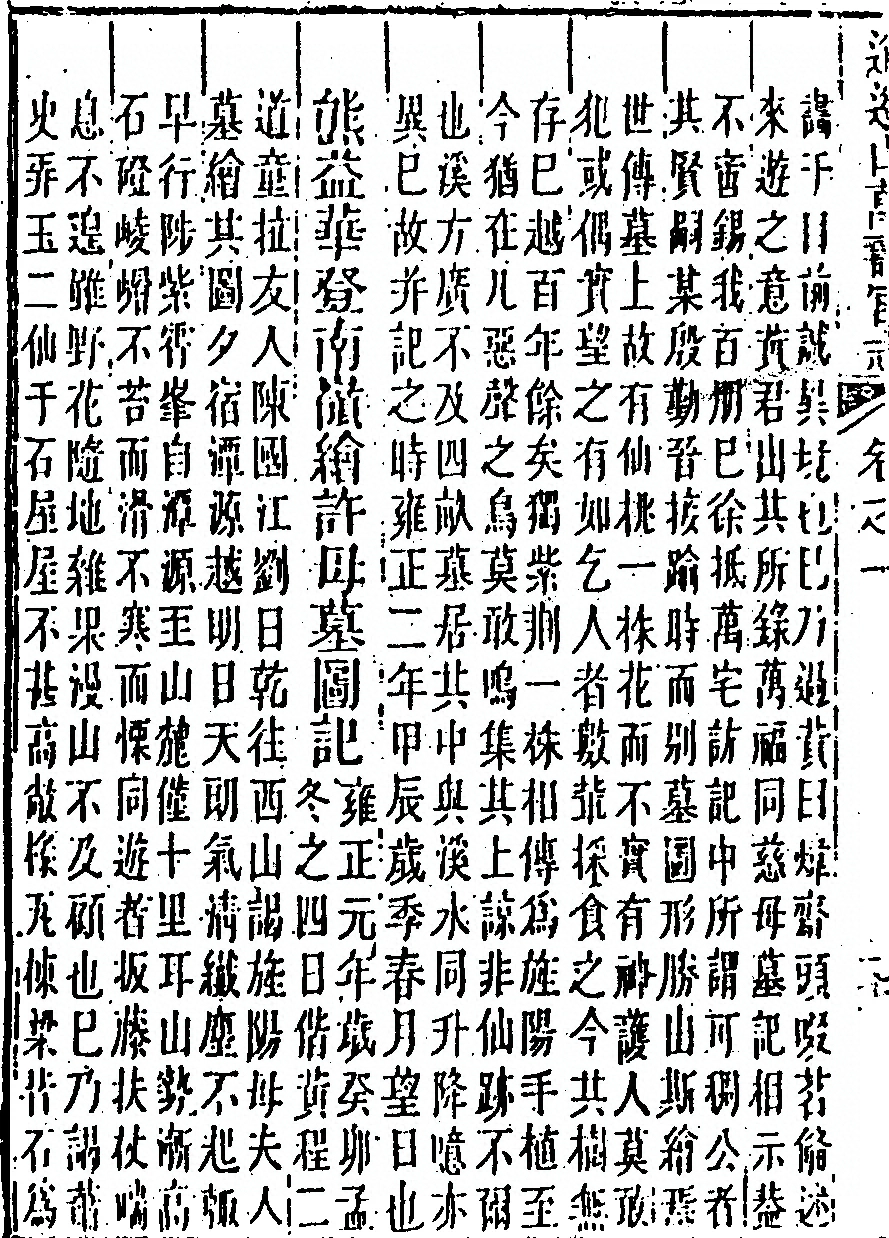 逍遙山萬壽宮志 卷之八
畵于目前誠異境也巳乃過黃日煒齋頭啜茗備述
來遊之意黃君出其所錄萬福同慈母墓記相示葢
不啻錫我百朋巳徐抵萬宅訪記中所謂可綱公者
其賢嗣某殷勤晉接踰時而别墓圖形勝山斯繪焉
世傳墓上故有仙桃一株花而不實有神護人莫敢
犯或偶實望之有如乞人者數輩採食之今其樹無
存巳越百年餘矣獨紫荆一株相傳爲旌陽手植至
今猶在凡惡聲之鳥莫敢鳴集其上諒非仙跡不爾
也溪方廣不及四畝墓居其中與溪水同升降噫亦
異巳故并記之時雍正二年甲辰歲季春月望日也
熊益華登南嶺繪許母墓圖記
雍正元年歲癸卯孟
冬之四日偕黃程二
道童拉友人陳國江劉日乾往西山謁旌陽母夫人
墓繪其圖夕宿潭源越明日天朗氣清纖塵不起輒
早行陟紫霄峯自潭源至山麓僅十里耳山勢漸高
石磴崚嶒不苔而滑不寒而慄同遊者扳藤扶杖喘
息不遑雖野花隨地雜果漫山不及顧也巳乃謁蕭
史弄玉二仙于石屋屋不甚高敞椽瓦棟梁皆石爲